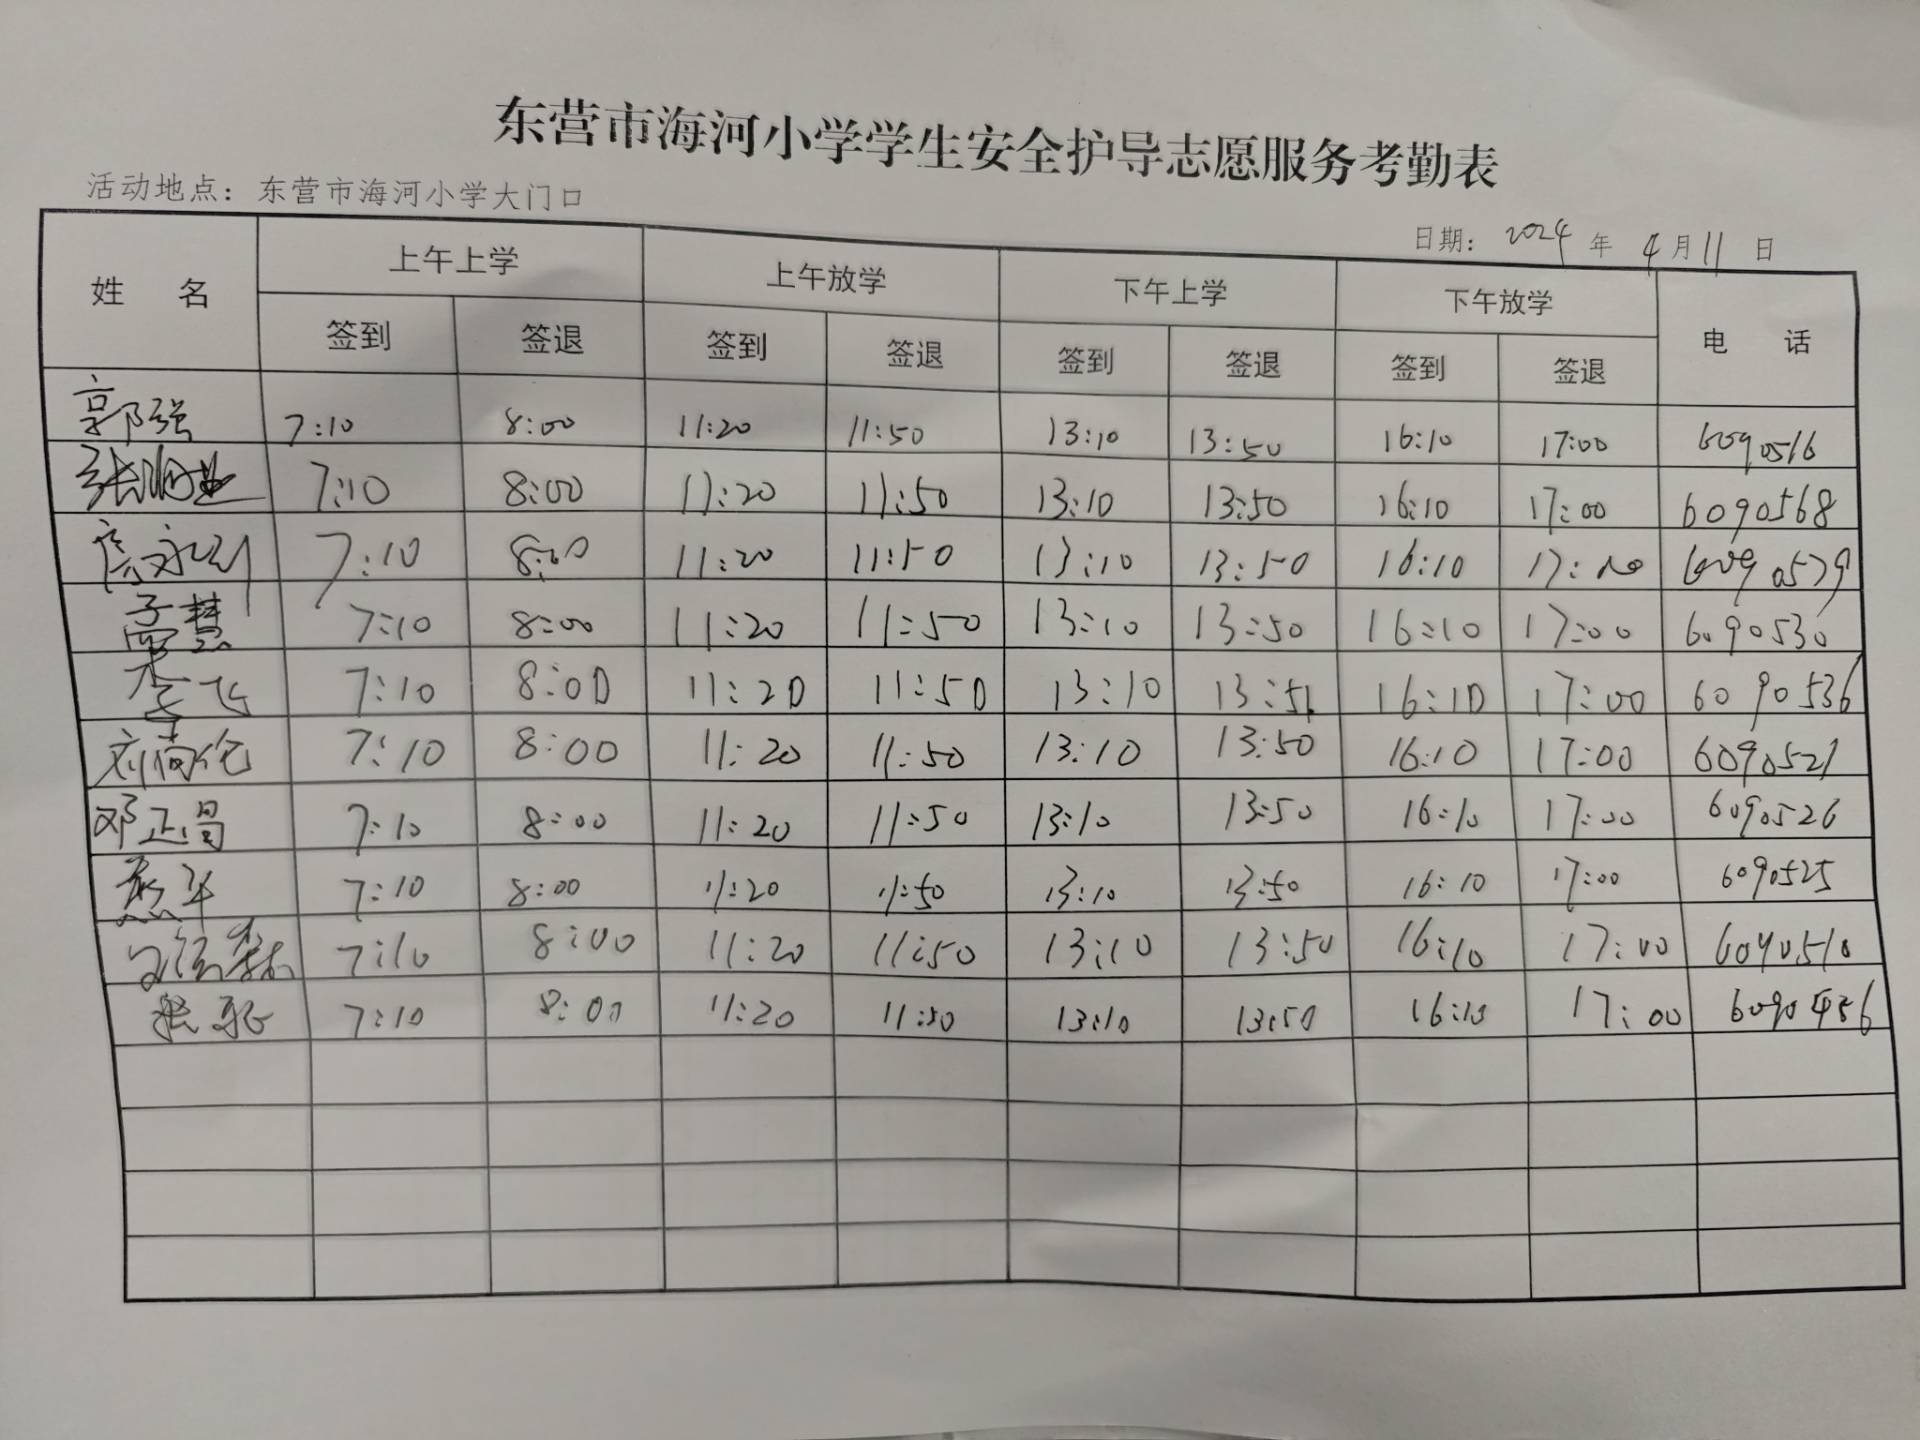 东营市海河小学学生安全护导志愿服务考勤表
活动地点：东营市海河小学大门口
日期：2024年4月11日
姓 名 上午上学 上午放学 下午上学 下午放学 电 话
签到 签退 签到 签退 签到 签退 签到 签退
郭强 7:10 8:00 11:20 11:50 13:10 13:50 16:10 17:00 6090516
7:10 8:00 11:20 11:50 13:10 13:50 16:10 17:00 6090568
7:10 8:00 11:20 11:50 13:10 13:50 16:10 17:00 6090579
7:10 8:00 11:20 11:50 13:10 13:50 16:10 17:00 6090530
李飞 7:10 8:00 11:20 11:50 13:10 16:10 17:00 6090536
7:10 8:00 11:20 11:50 13:10 13:50 16:10 17:00 6090521
邓正昌 7:10 8:00 11:20 11:50 13:10 13:50 16:10 17:00 6090526
7:10 8:00 11:20 11:50 13:10 13:50 16:10 17:00 6090525
7:10 8:00 11:20 11:50 13:10 13:50 16:10 17:00 6090510
7:10 8:00 11:20 11:50 13:10 13:50 16:10 17:00